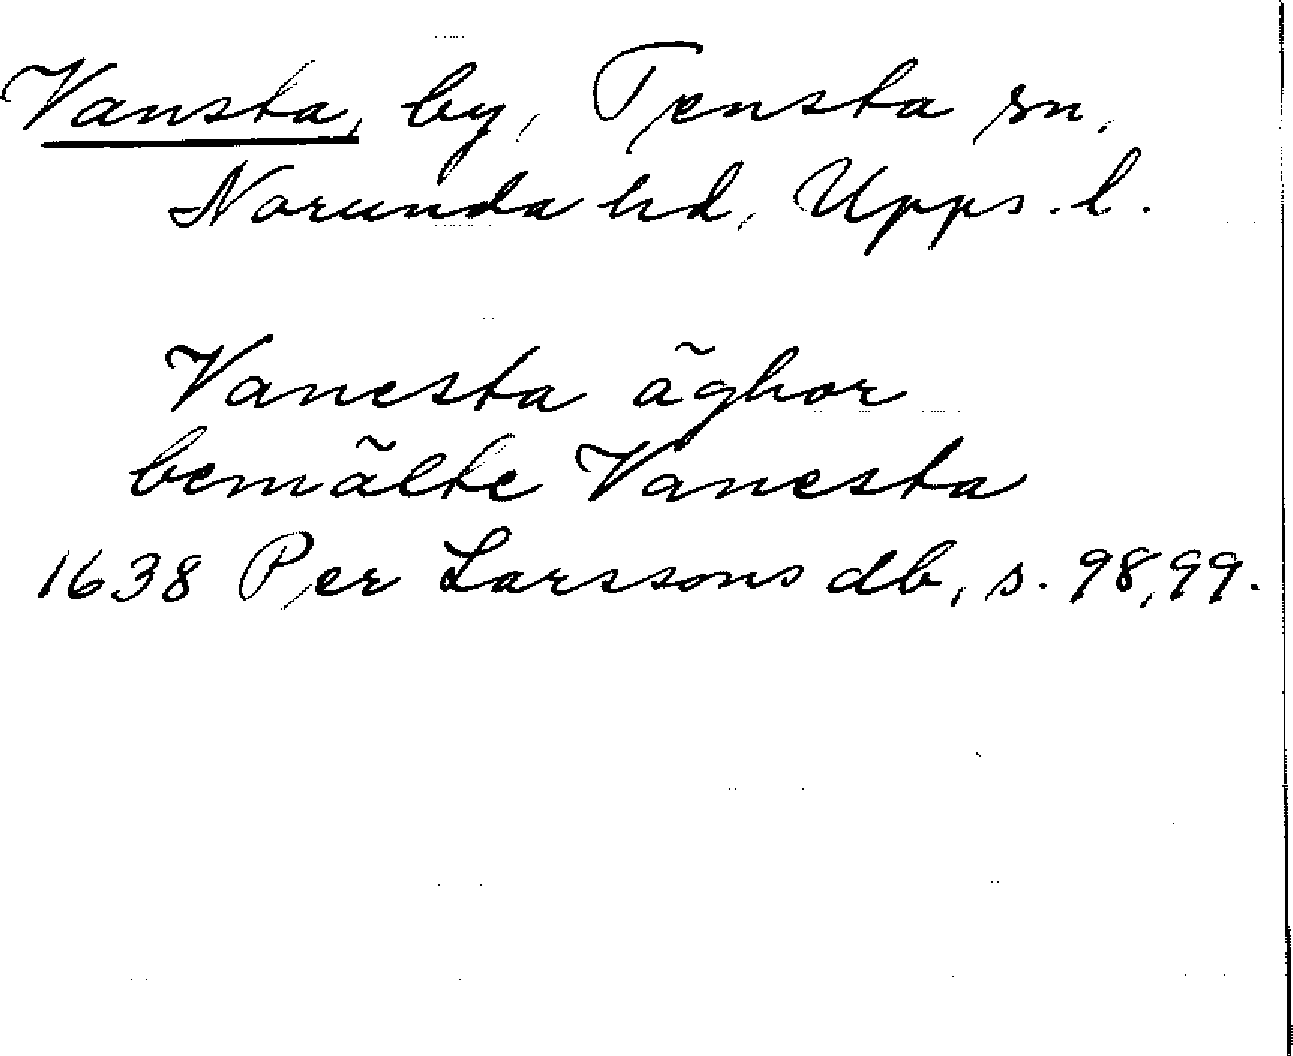 Vansta, by, Tensta sn,
Norunda hd, Upps. l.
Vanesta ãghor
bemãlte Vanesta
1638 Per Larssons db, s. 98, 99.